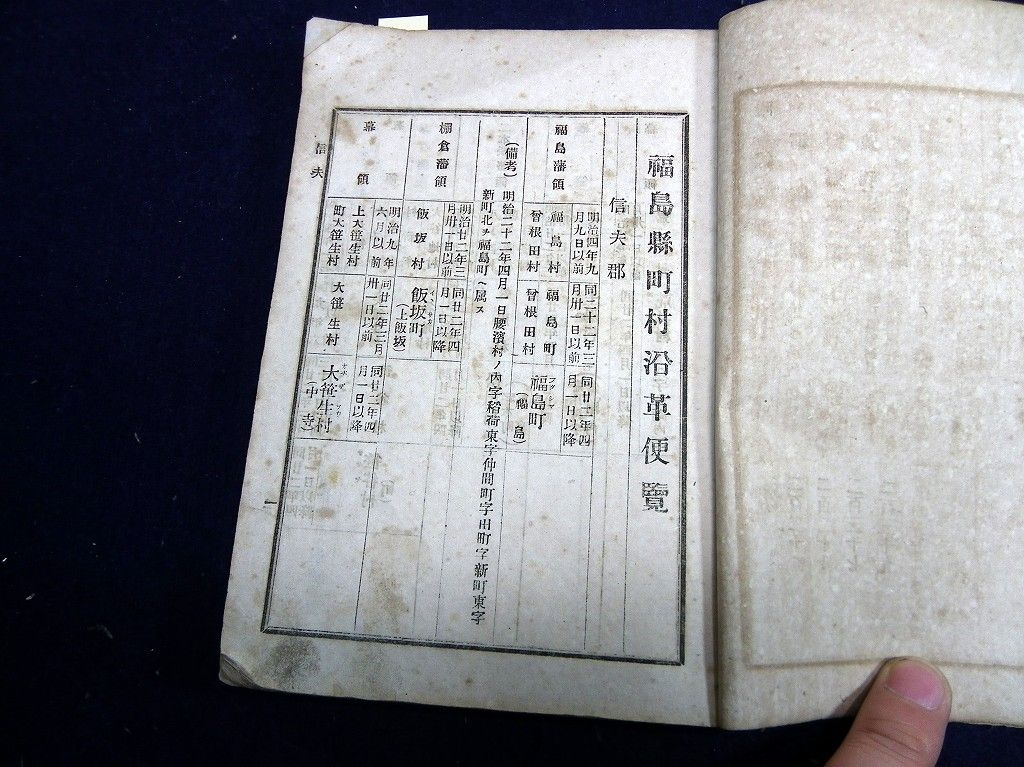 福島縣町村沿革便覽
信夫郡
福島藩領
明治四年九
月九日以前
同二十二年三
月卅一日以前
同廿二年四
月一日以降
福島村
福島町
フクシマ
福島町
(福島)
曾根田村
曾根田村
(備考)
明治二十二年四月一日腰濱村ノ內字稻荷東字仲間町字出町字新町東字
新町北ヲ福島町ヘ屬ス
棚倉藩領
明治廿二年三
月卅一日以前
同廿二年四
月一日以降
飯坂村
飯坂町
(上飯坂)
幕領
明治九年
六月以前
同廿二年三月
卅一日以前
同廿二年四
月一日以降
上大笹生村
町大笹生村
大笹生村
大笹生村
(中寺)
信夫
一